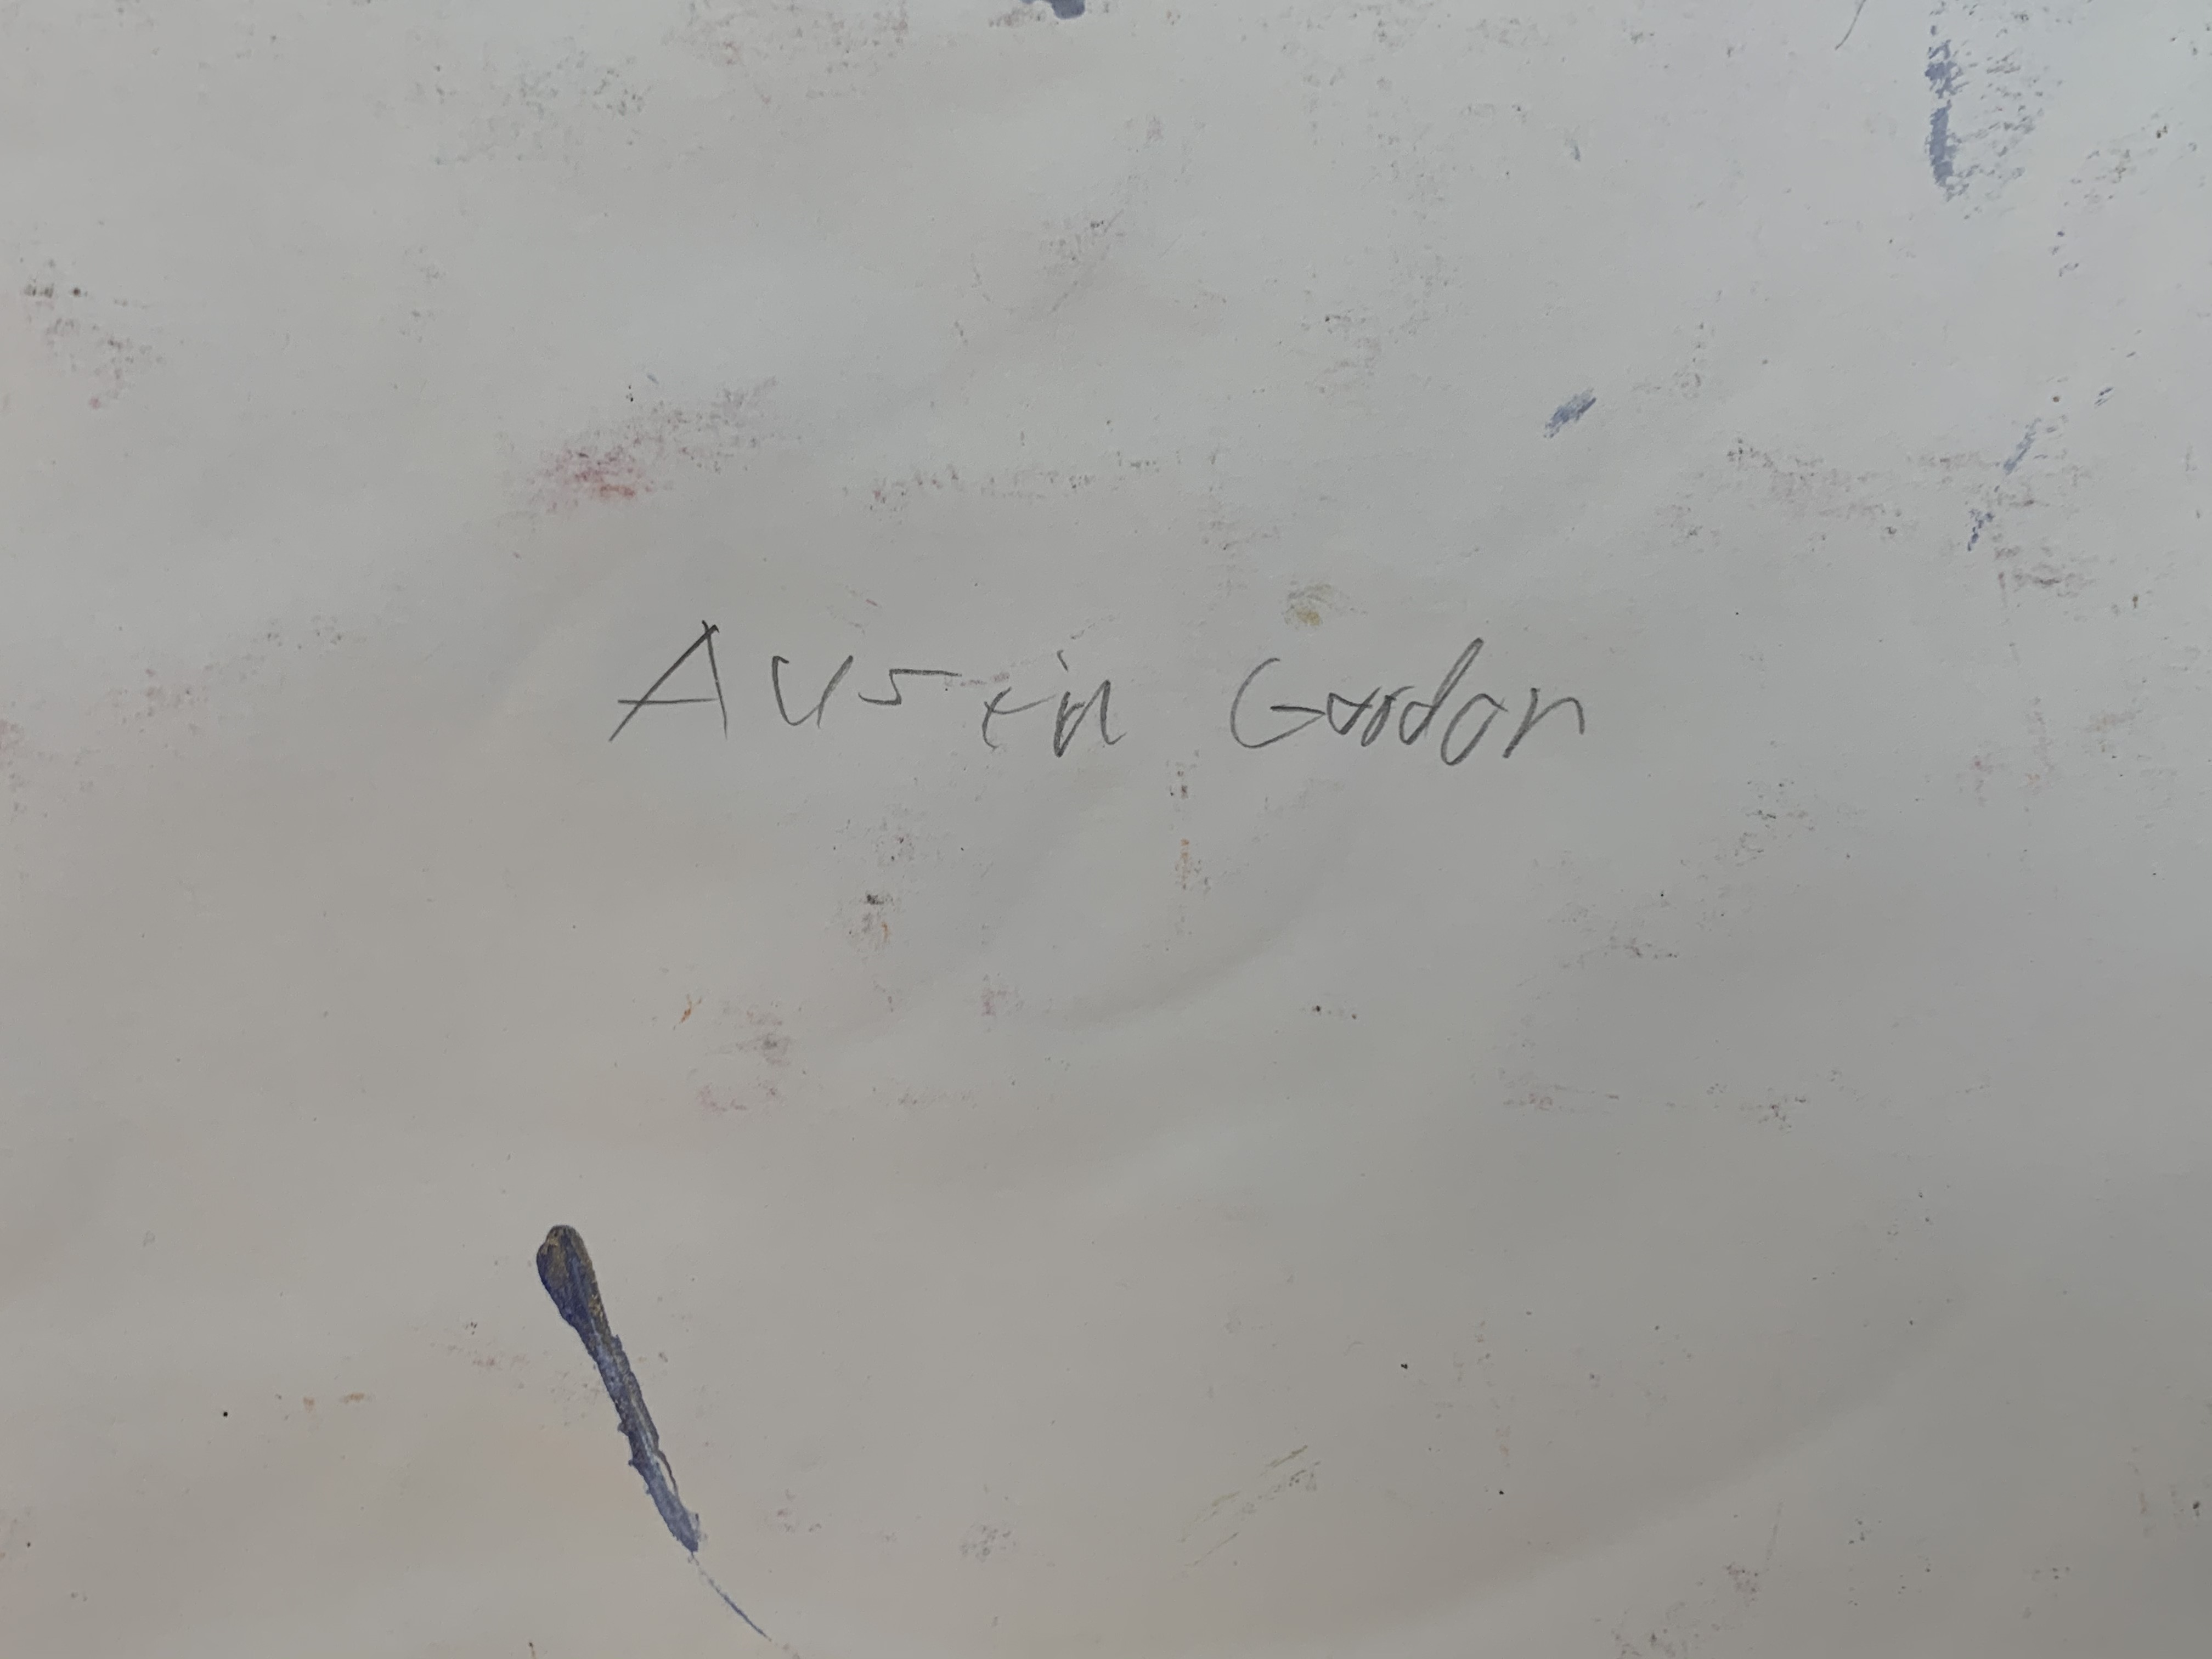 Austin Gordon